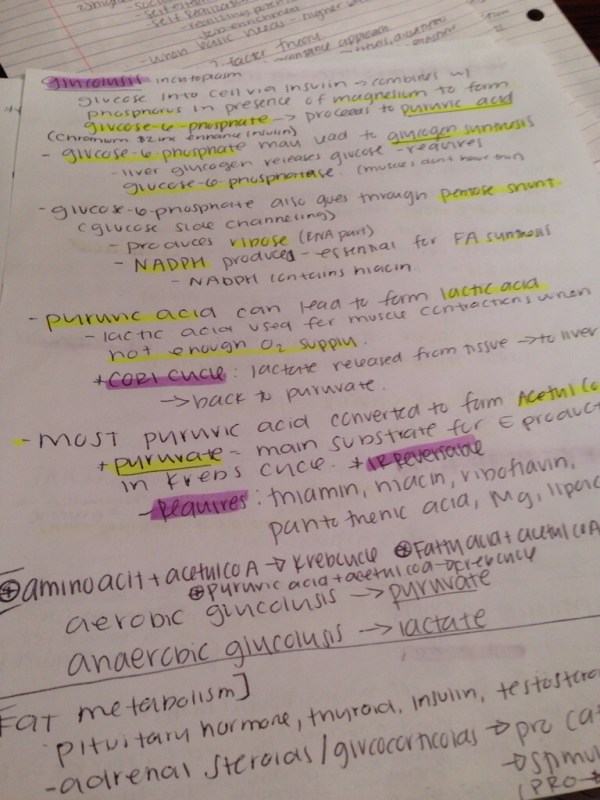 - social
- self esteem
self realization
- realizing potential
job enrichment
- when basic needs - higher
2 factor theory
glycolysis in cytoplasm
glucose into cell via insulin → combines w/
phosphorus in presence of magnesium to form
glucose-6-phosphate → proceeds to pyruvic acid
(chromium & zinc enhance insulin)
- glucose-6-phosphate may lead to glycogen synthesis
- liver glycogen releases glucose - requires
glucose-6-phosphatase. (muscles don't have this)
- glucose-6-phosphate also goes through pentose shunt
(glucose side channeling)
- produces ribose (RNA part)
- NADPH produced - essential for FA synthesis
- NADPH contains niacin
- pyruvic acid can lead to form lactic acid
- lactic acid used for muscle contractions when
not enough O2 supply.
* CORI cycle: lactate released from tissue → to liver
→ back to pyruvate.
- most pyruvic acid converted to form Acetyl Co
* pyruvate = main substrate for E product
in krebs cycle. * IRReversable
- Requires: thiamin, niacin, riboflavin,
pantothenic acid, Mg, lipoic
⊕ amino acit + acetylcoA → krebcycle ⊕ Fatty acid + acetyl coA
⊕ pyruvic acid + acetyl coa → crebcycle
aerobic glycolysis → pyruvate
anaerobic glycolysis → lactate
FAT metabolism]
- pituitary hormone, thyroid, insulin, testostero
- adrenal steroids/glycocorticoids → pro ca
→ stimu
(PRO →